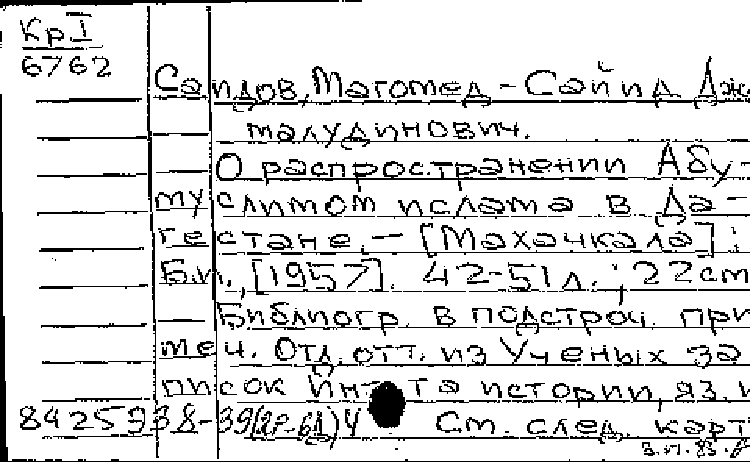 Кр I
6762
Саидов, Магомед-Сайид Дже
малудинович.
О распространении Абу-
муслимом ислама в Да-
гестане. — [Махачкала]:
Б.и., [1957]. 42-51 л.; 22 см
Библиогр. в подстроч. при
меч. Отд. отт. из Ученых за
писок Ин-та истории, яз. и
842593 См. след. карт